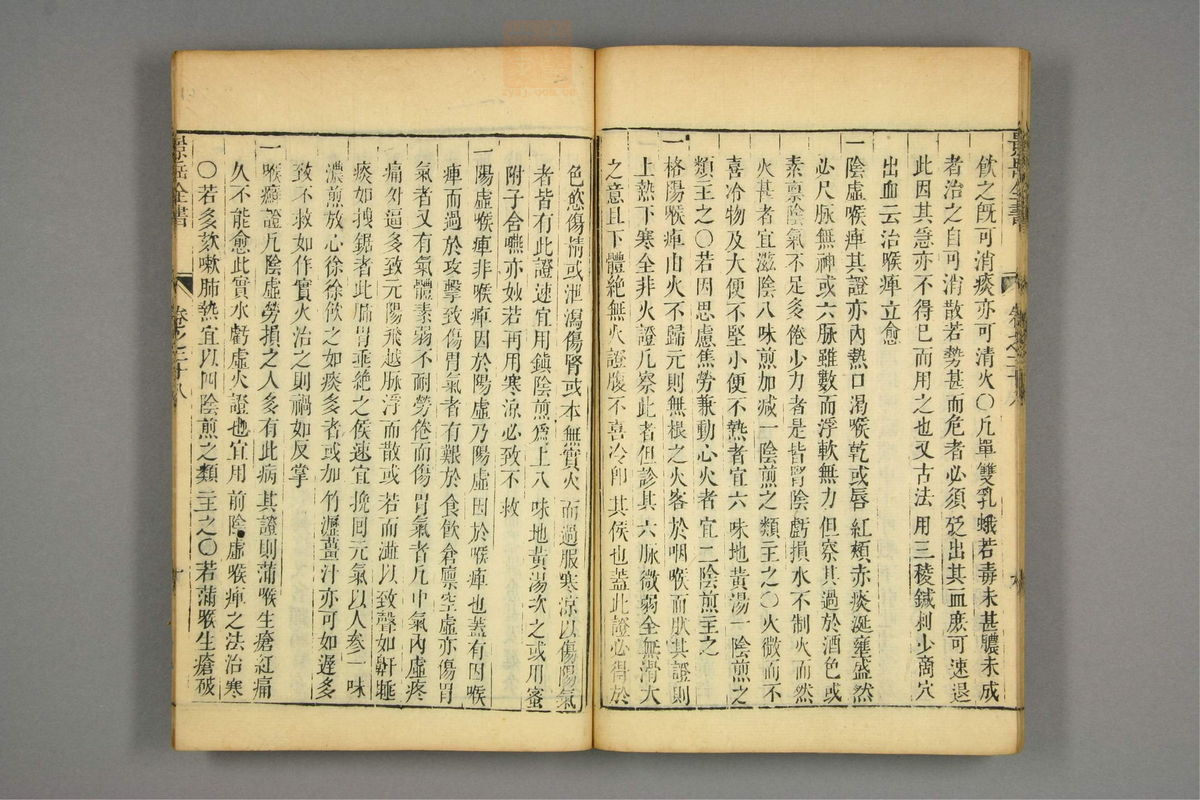 景岳全書
飲之旣可消痰亦可清火〇凡單雙乳蛾若毒未甚膿未成
者治之自可消散若勢甚而危者必須砭出其血庶可速退
此因其急亦不得已而用之也又古法用三稜鍼刺少商穴
出血云治喉痺立愈
一陰虛喉痺其證亦內熱口渴喉乾或唇紅頰赤痰涎壅盛然
必尺脉無神或六脉雖數而浮軟無力但察其過於酒色或
素禀陰氣不足多倦少力者是皆腎陰虧損水不制火而然
火甚者宜滋陰八味煎加减一陰煎之類主之〇火微而不
喜冷物及大便不堅小便不熱者宜六味地黃湯一陰煎之
類主之〇若因思慮焦勞兼動心火者宜二陰煎主之
一格陽喉痺由火不歸元則無根之火客於咽喉而肰其證則
上熱下寒全非火證凡察此者但診其六脉微弱全無滑大
之意且下體絶無火證腹不喜冷卽其候也蓋此證必得於
色慾傷精或泄瀉傷腎或本無實火而過服寒凉以傷陽氣
者皆有此證速宜用鎮陰煎爲上八味地黃湯次之或用蜜
附子含嚥亦妙若再用寒凉必致不救
一陽虛喉痺非喉痺因於陽虛乃陽虛因於喉痺也蓋有因喉
痺而過於攻擊致傷胃氣者有艱於食飲倉廪空虛亦傷胃
氣者又有氣體素弱不耐勞倦而傷胃氣者凡中氣內虛疼
痛外逼多致元陽飛越脉浮而散或若而濇以致聲如鼾睡
痰如拽鋸者此肺胃垂絶之候速宜挽囘元氣以人参一味
濃煎放心徐徐飲之如痰多者或加竹瀝薑汁亦可如遲多
致不救如作實火治之則禍如反掌
一喉癬證凡陰虛勞損之人多有此病其證則滿喉生瘡紅痛
久不能愈此實水虧虛火證也宜用前陰虛喉痺之法治寒
〇若多欬嗽肺熱宜以四陰煎之類主之〇若滿喉生瘡破
景岳全書
卷之二十八